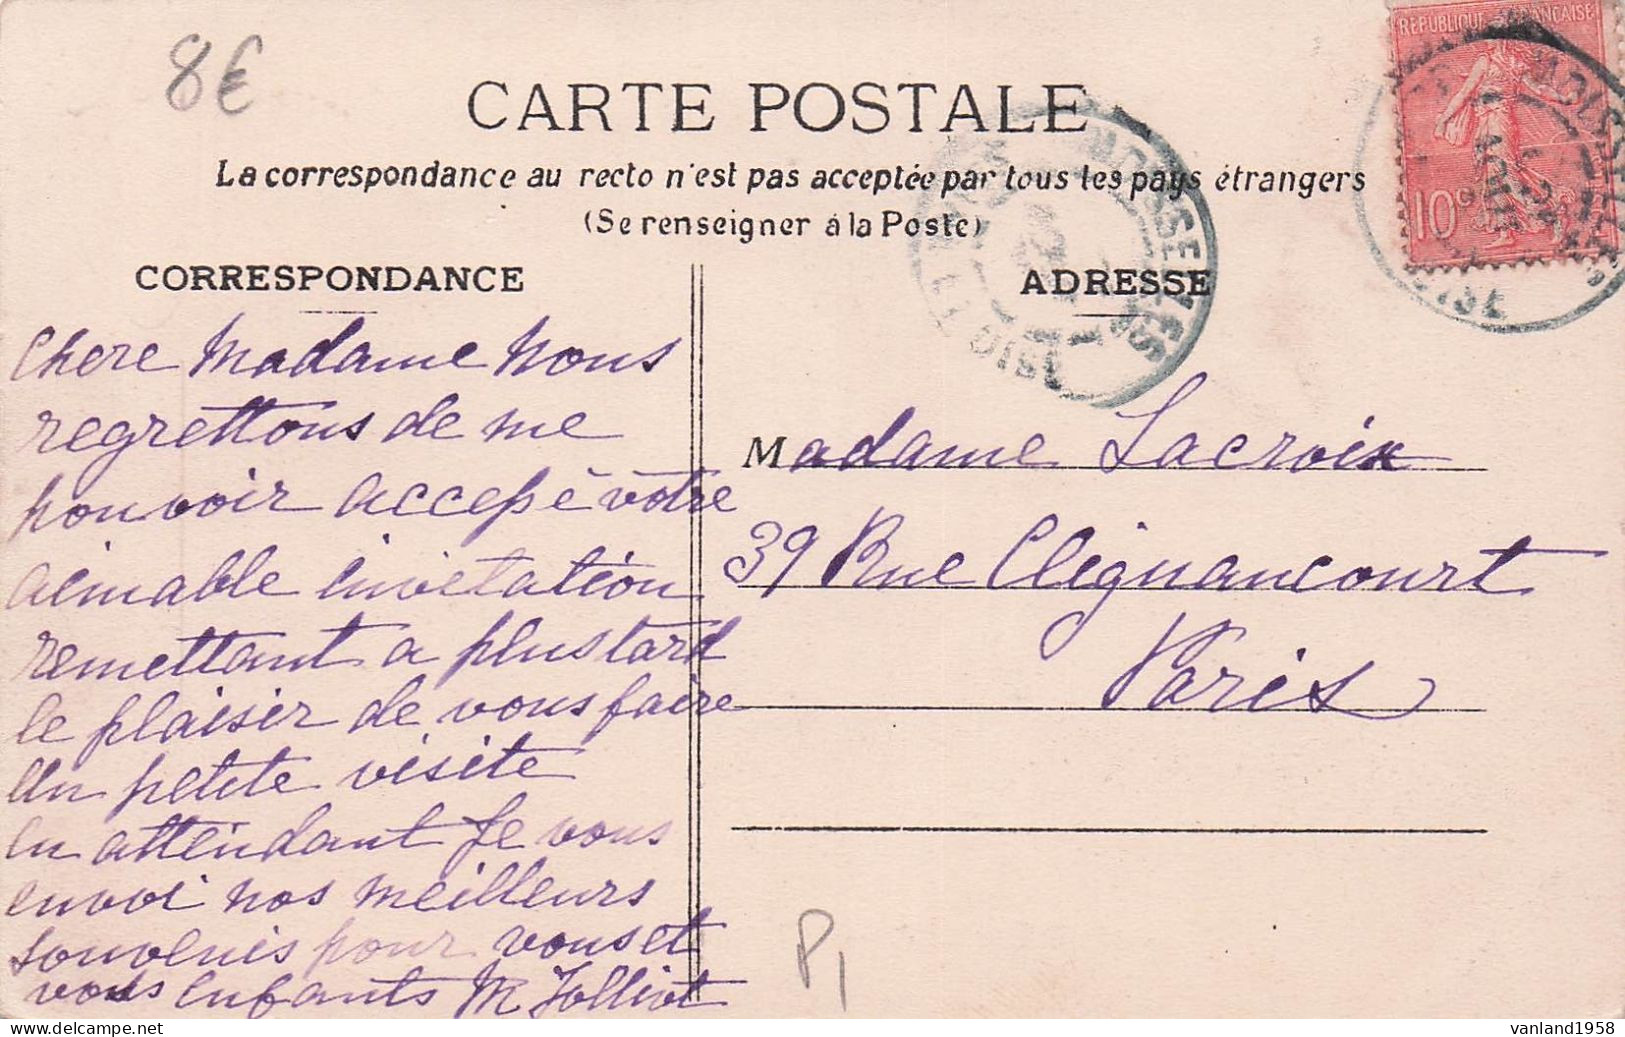 8€
RÉPUBLIQUE FRANÇAISE
10c
CARTE POSTALE
La correspondance au recto n'est pas acceptée par tous les pays étrangers
(Se renseigner à la Poste)
CORRESPONDANCE
Chere Madame Nous
regrettons de me
pouvoir accepé vôtre
aimable invitation
remettant a plus tard
le plaisir de vous faire
un petite visite
en attendant Je vous
envoi nos meilleurs
souvenis pour vous et
vous enfants M Jolliot
ADRESSE
Madame Lacroix
39 Rue Clignancourt
Paris
P1
vanland1958